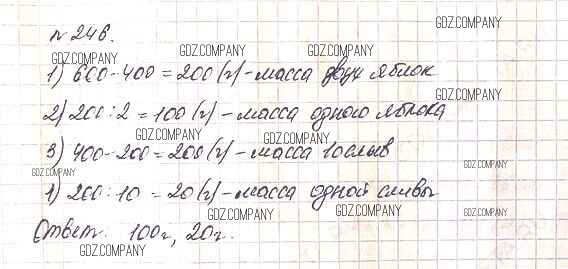 № 246.
GDZ.COMPANY
GDZ.COMPANY GDZ.COMPANY
GDZ.COMPANY
1) 600-400=200(г)-масса двух яблок
GDZ.COMPANY
2) 200:2=100(г)-масса одного яблока
GDZ.COMPANY GDZ.COMPANY
3) 400-200=200(г)-масса 10 слив
GDZ.COMPANY
GDZ.COMPANY GDZ.COMPANY
4) 200:10=20(г)-масса одной сливы
GDZ.COMPANY GDZ.COMPANY GDZ.COMPANY
Ответ: 100г, 20г.
GDZ.COMPANY